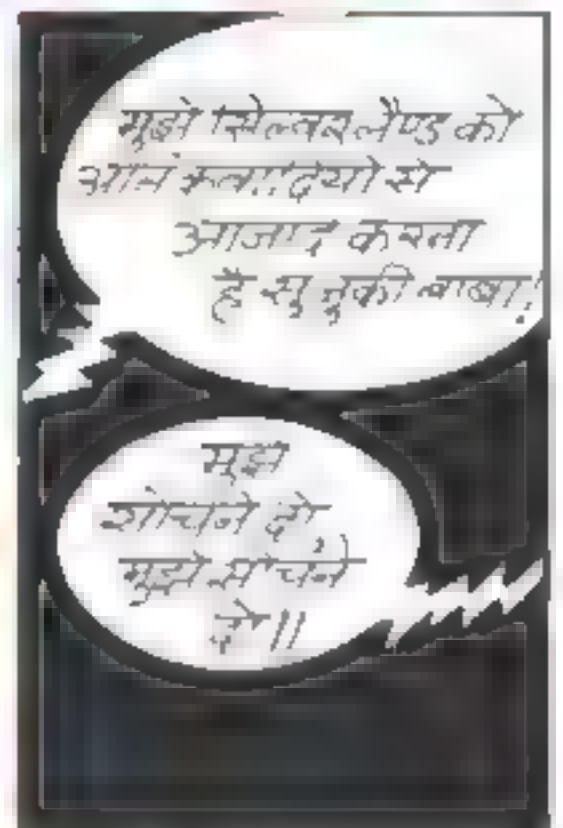 मुझे सिल्वरलैण्ड को
आतंकवादियों से
आजाद करना
है सुनुकी बाबा!
मुझे
सोचने दो,
मुझे सोचने
दो!!